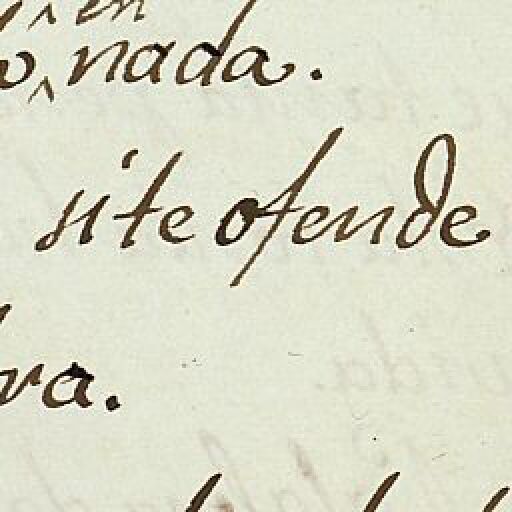 en
nada.
site ofende
ra.